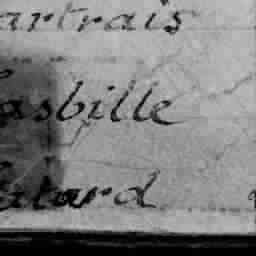 artrais
asbille
tard